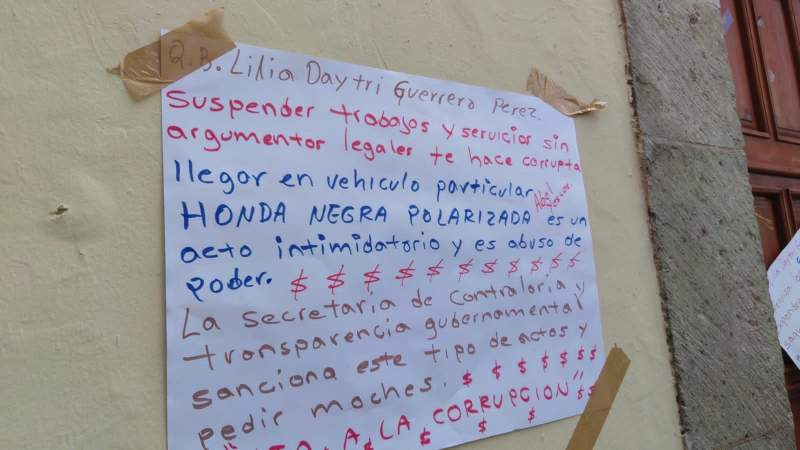 Q.B. Lilia Daytri Guerrero Perez.
Suspender trabajos y servicios sin
argumentor legales te hace corrupta
llegar en vehiculo particular
HONDA NEGRA POLARIZADA es un
acto intimidatorio y es abuso de
poder. $ $ $ $ $ $ $ $ $ $
La secretaria de contraloria y
transparencia gubernamental
sanciona este tipo de actos y
pedir moches. $ $ $ $ $ $ $
A LA CORRUPCION" $ $
$ $ $ $